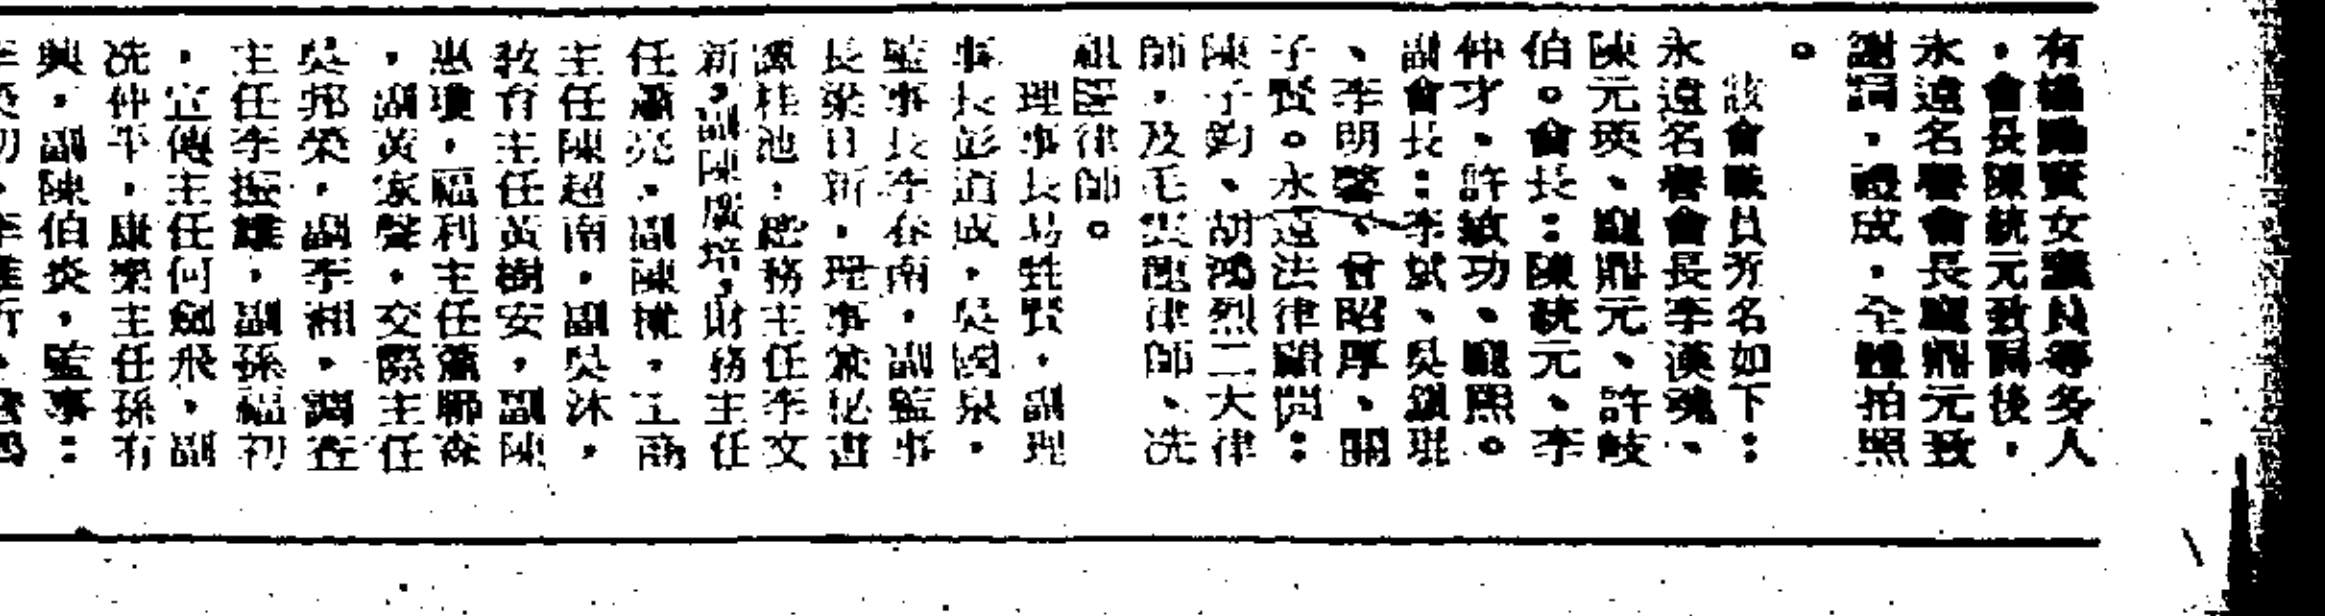 有楊勵賢女議員等多人
，會長陳統元致詞後，
永遠名譽會長龐鼎元致
謝詞，禮成，全體拍照
。
該會職員芳名如下：
永遠名譽會長李漢魂、
陳元瑛、龐鼎元、許岐
伯。會長：陳統元、李
仲才、許敏功、龐照。
副會長：李斌、吳鎮琨
、李明馨、曾昭厚、關
子賢。永遠法律顧問：
陳子鈞、胡鴻烈二大律
師，及毛雲龍律師、冼
祖匡律師。
理事長易甡賢，副理
事長彭道成，吳國泉，
監事長李春南，副監事
長梁日新，理事兼秘書
譚桂池，總務主任李文
新，副陳廣培，財務主任
任蕭亮，副陳權，工商
主任陳超南，副吳沐，
教育主任黃樹安，副陳
惠瓊，福利主任蕭聯森
，副黃家聲，交際主任
吳邦榮，副李湘，調查
主任李振雄，副孫福初
，宣傳主任何劍飛，副
冼仲平，康樂主任孫有
興，副陳伯炎，監事：